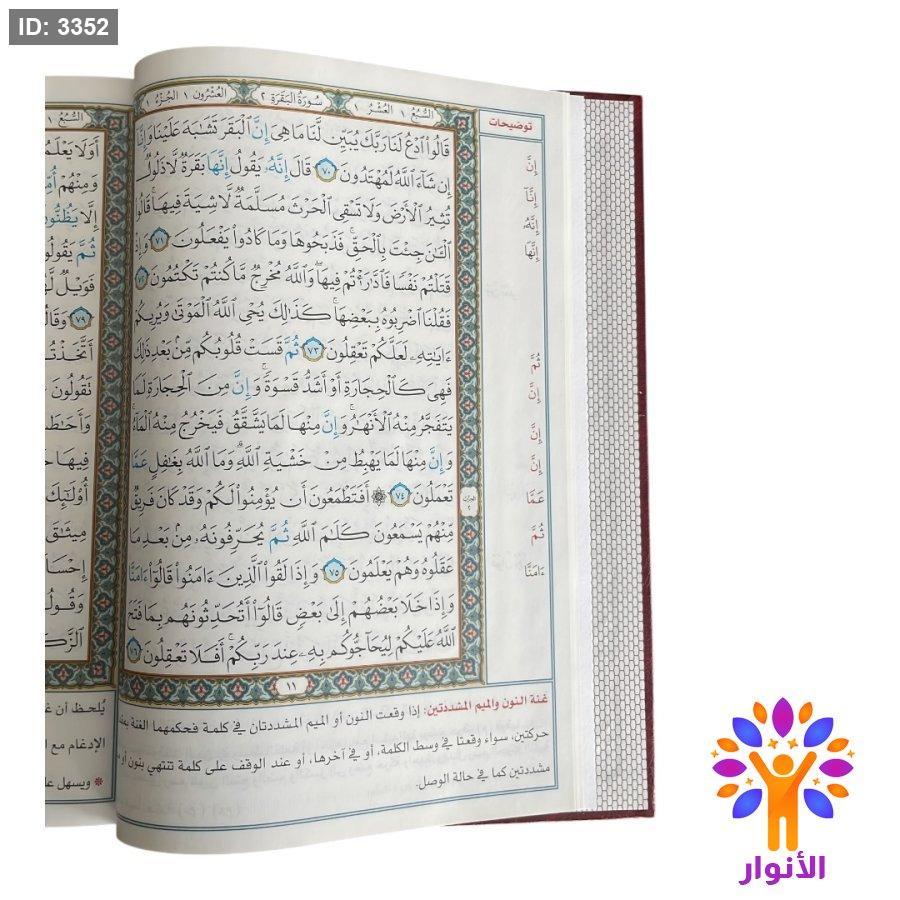 ID: 3352
السُّبُعُ ١ العُشْرُ ١ سُورَةُ البَقَرَةِ ٢ العُشْرُون ١ الجُزْءُ ١
توضيحات
قَالُوا۟ ٱدْعُ لَنَا رَبَّكَ يُبَيِّن لَّنَا مَا هِىَ إِنَّ ٱلْبَقَرَ تَشَٰبَهَ عَلَيْنَا وَإِنَّآ
إِن شَآءَ ٱللَّهُ لَمُهْتَدُونَ ٧٠ قَالَ إِنَّهُۥ يَقُولُ إِنَّهَا بَقَرَةٌ لَّا ذَلُولٌ
تُثِيرُ ٱلْأَرْضَ وَلَا تَسْقِى ٱلْحَرْثَ مُسَلَّمَةٌ لَّا شِيَةَ فِيهَا ۚ قَالُوا۟
ٱلْـَٰٔنَ جِئْتَ بِٱلْحَقِّ ۚ فَذَبَحُوهَا وَمَا كَادُوا۟ يَفْعَلُونَ ٧١ وَإِذْ
قَتَلْتُمْ نَفْسًا فَٱدَّٰرَْٰٔتُمْ فِيهَا ۖ وَٱللَّهُ مُخْرِجٌ مَّا كُنتُمْ تَكْتُمُونَ ٧٢
فَقُلْنَا ٱضْرِبُوهُ بِبَعْضِهَا ۚ كَذَٰلِكَ يُحْىِ ٱللَّهُ ٱلْمَوْتَىٰ وَيُرِيكُمْ
ءَايَٰتِهِۦ لَعَلَّكُمْ تَعْقِلُونَ ٧٣ ثُمَّ قَسَتْ قُلُوبُكُم مِّنۢ بَعْدِ ذَٰلِكَ
فَهِىَ كَٱلْحِجَارَةِ أَوْ أَشَدُّ قَسْوَةً ۚ وَإِنَّ مِنَ ٱلْحِجَارَةِ لَمَا
يَتَفَجَّرُ مِنْهُ ٱلْأَنْهَٰرُ ۚ وَإِنَّ مِنْهَا لَمَا يَشَّقَّقُ فَيَخْرُجُ مِنْهُ ٱلْمَآءُ ۚ
وَإِنَّ مِنْهَا لَمَا يَهْبِطُ مِنْ خَشْيَةِ ٱللَّهِ ۗ وَمَا ٱللَّهُ بِغَٰفِلٍ عَمَّا
تَعْمَلُونَ ٧٤ ۞ أَفَتَطْمَعُونَ أَن يُؤْمِنُوا۟ لَكُمْ وَقَدْ كَانَ فَرِيقٌ
مِّنْهُمْ يَسْمَعُونَ كَلَٰمَ ٱللَّهِ ثُمَّ يُحَرِّفُونَهُۥ مِنۢ بَعْدِ مَا
عَقَلُوهُ وَهُمْ يَعْلَمُونَ ٧٥ وَإِذَا لَقُوا۟ ٱلَّذِينَ ءَامَنُوا۟ قَالُوٓا۟ ءَامَنَّا
وَإِذَا خَلَا بَعْضُهُمْ إِلَىٰ بَعْضٍ قَالُوٓا۟ أَتُحَدِّثُونَهُم بِمَا فَتَحَ
ٱللَّهُ عَلَيْكُمْ لِيُحَآجُّوكُم بِهِۦ عِندَ رَبِّكُمْ ۚ أَفَلَا تَعْقِلُونَ ٧٦
١١
إِنَّ
إِنَّآ
إِنَّهُۥ
إِنَّهَا
ثُمَّ
إِنَّ
إِنَّ
إِنَّ
عَمَّا
ثُمَّ
ءَامَنَّا
غنة النون والميم المشددتين: إذا وقعت النون أو الميم المشددتان في كلمة فحكمهما الغنة بمقدار
حركتين، سواء وقعتا في وسط الكلمة، أو في آخرها، أو عند الوقف على كلمة تنتهي بنون أو ميم
مشددتين كما في حالة الوصل.
السُّبُعُ ١
أَوَلَا يَعْلَمُ
وَمِنْهُمْ
إِلَّا يَظُنُّونَ
ثُمَّ يَقُولُو
فَوَيْلٌ
٧٩ وَقَالُ
أَتَّخَذْتُ
تَقُولُونَ
وَأَحَٰطَ
فِيهَا
أُو۟لَٰٓئِكَ
مِيثَٰقَ
إِحْسَا
وَقُولُ
ٱلزَّكَ
يُلحظ أن
الإدغام مع
* ويسهل
الأنوار